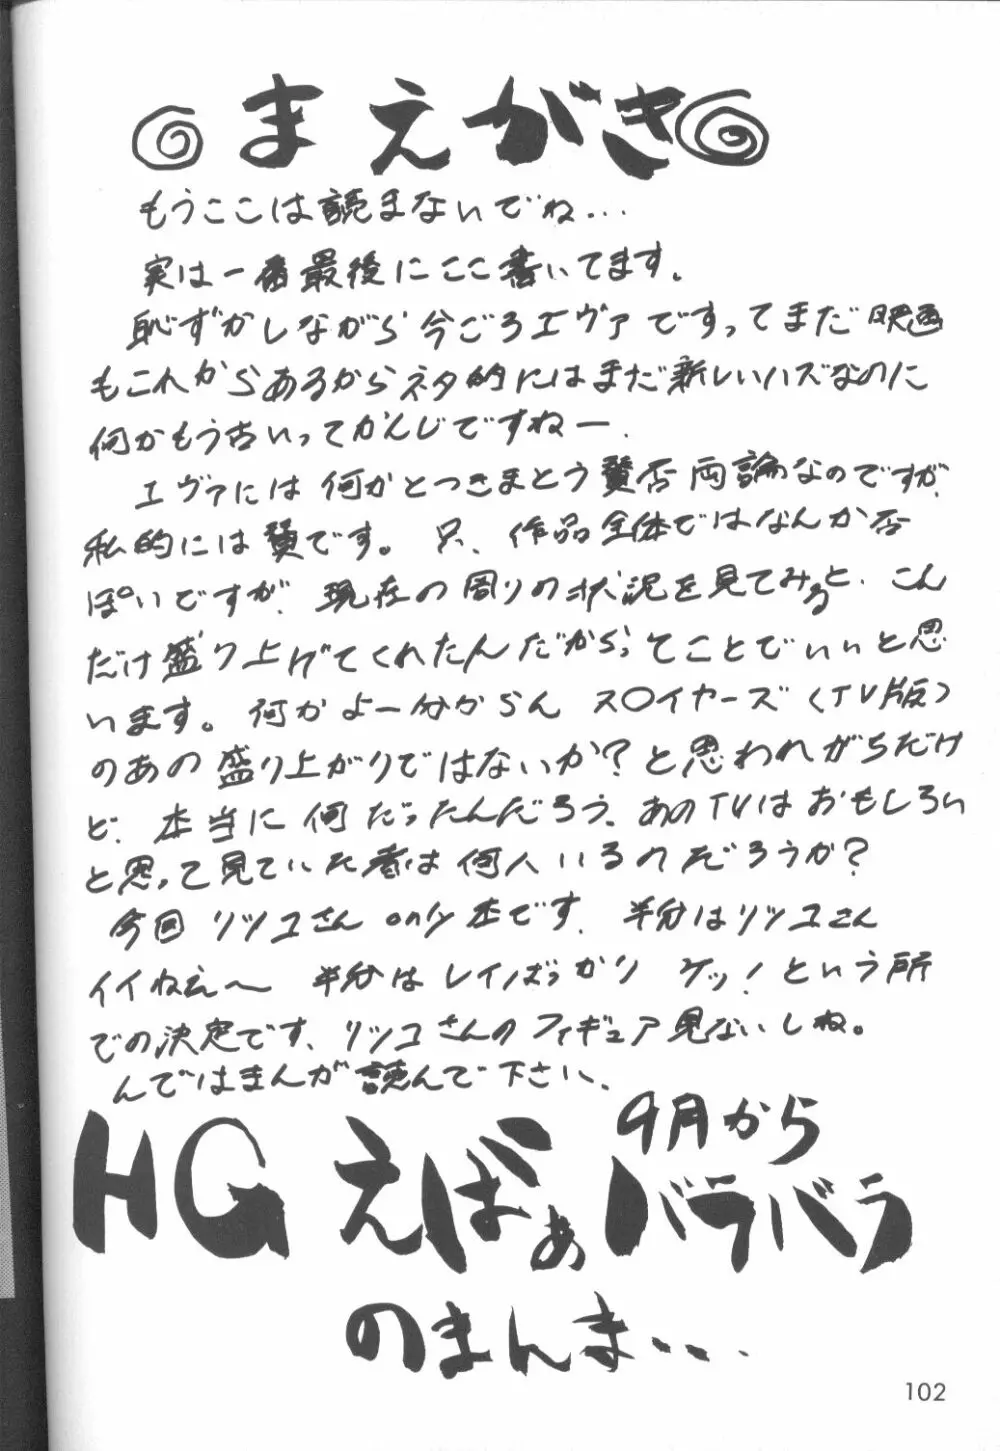 まえがき
もうここは読まないでね…
実は一番最後にここ書いてます。
恥ずかしながら今ごろエヴァですってまだ映画
もこれからあるからネタ的にはまだ新しいハズなのに
何かもう古いってかんじですねー.
エヴァには何かとつきまとう賛否両論なのですが、
私的には賛です。只、作品全体ではなんか否
ぽいですが、現在の周りの状況を見てみると、こん
だけ盛り上げてくれたんだから、てことでいいと思
います。何かよー分からん スOイヤーズ〈TV版〉
のあの盛り上がりではないか?と思われがちだけ
ど、本当に何だったんだろう。あのTVはおもしろい
と思って見ていた者は何人いるのだろうか?
今回 リツコさん only 本です. 半分はリツコさん
イイねえ〜 半分はレイばっかり ケッ!という所
での決定です、リツコさんのフィギュア見ないしね。
んではまんが読んで下さい、
HG えばぁ 9月からバラバラ
のまんま・・・
102